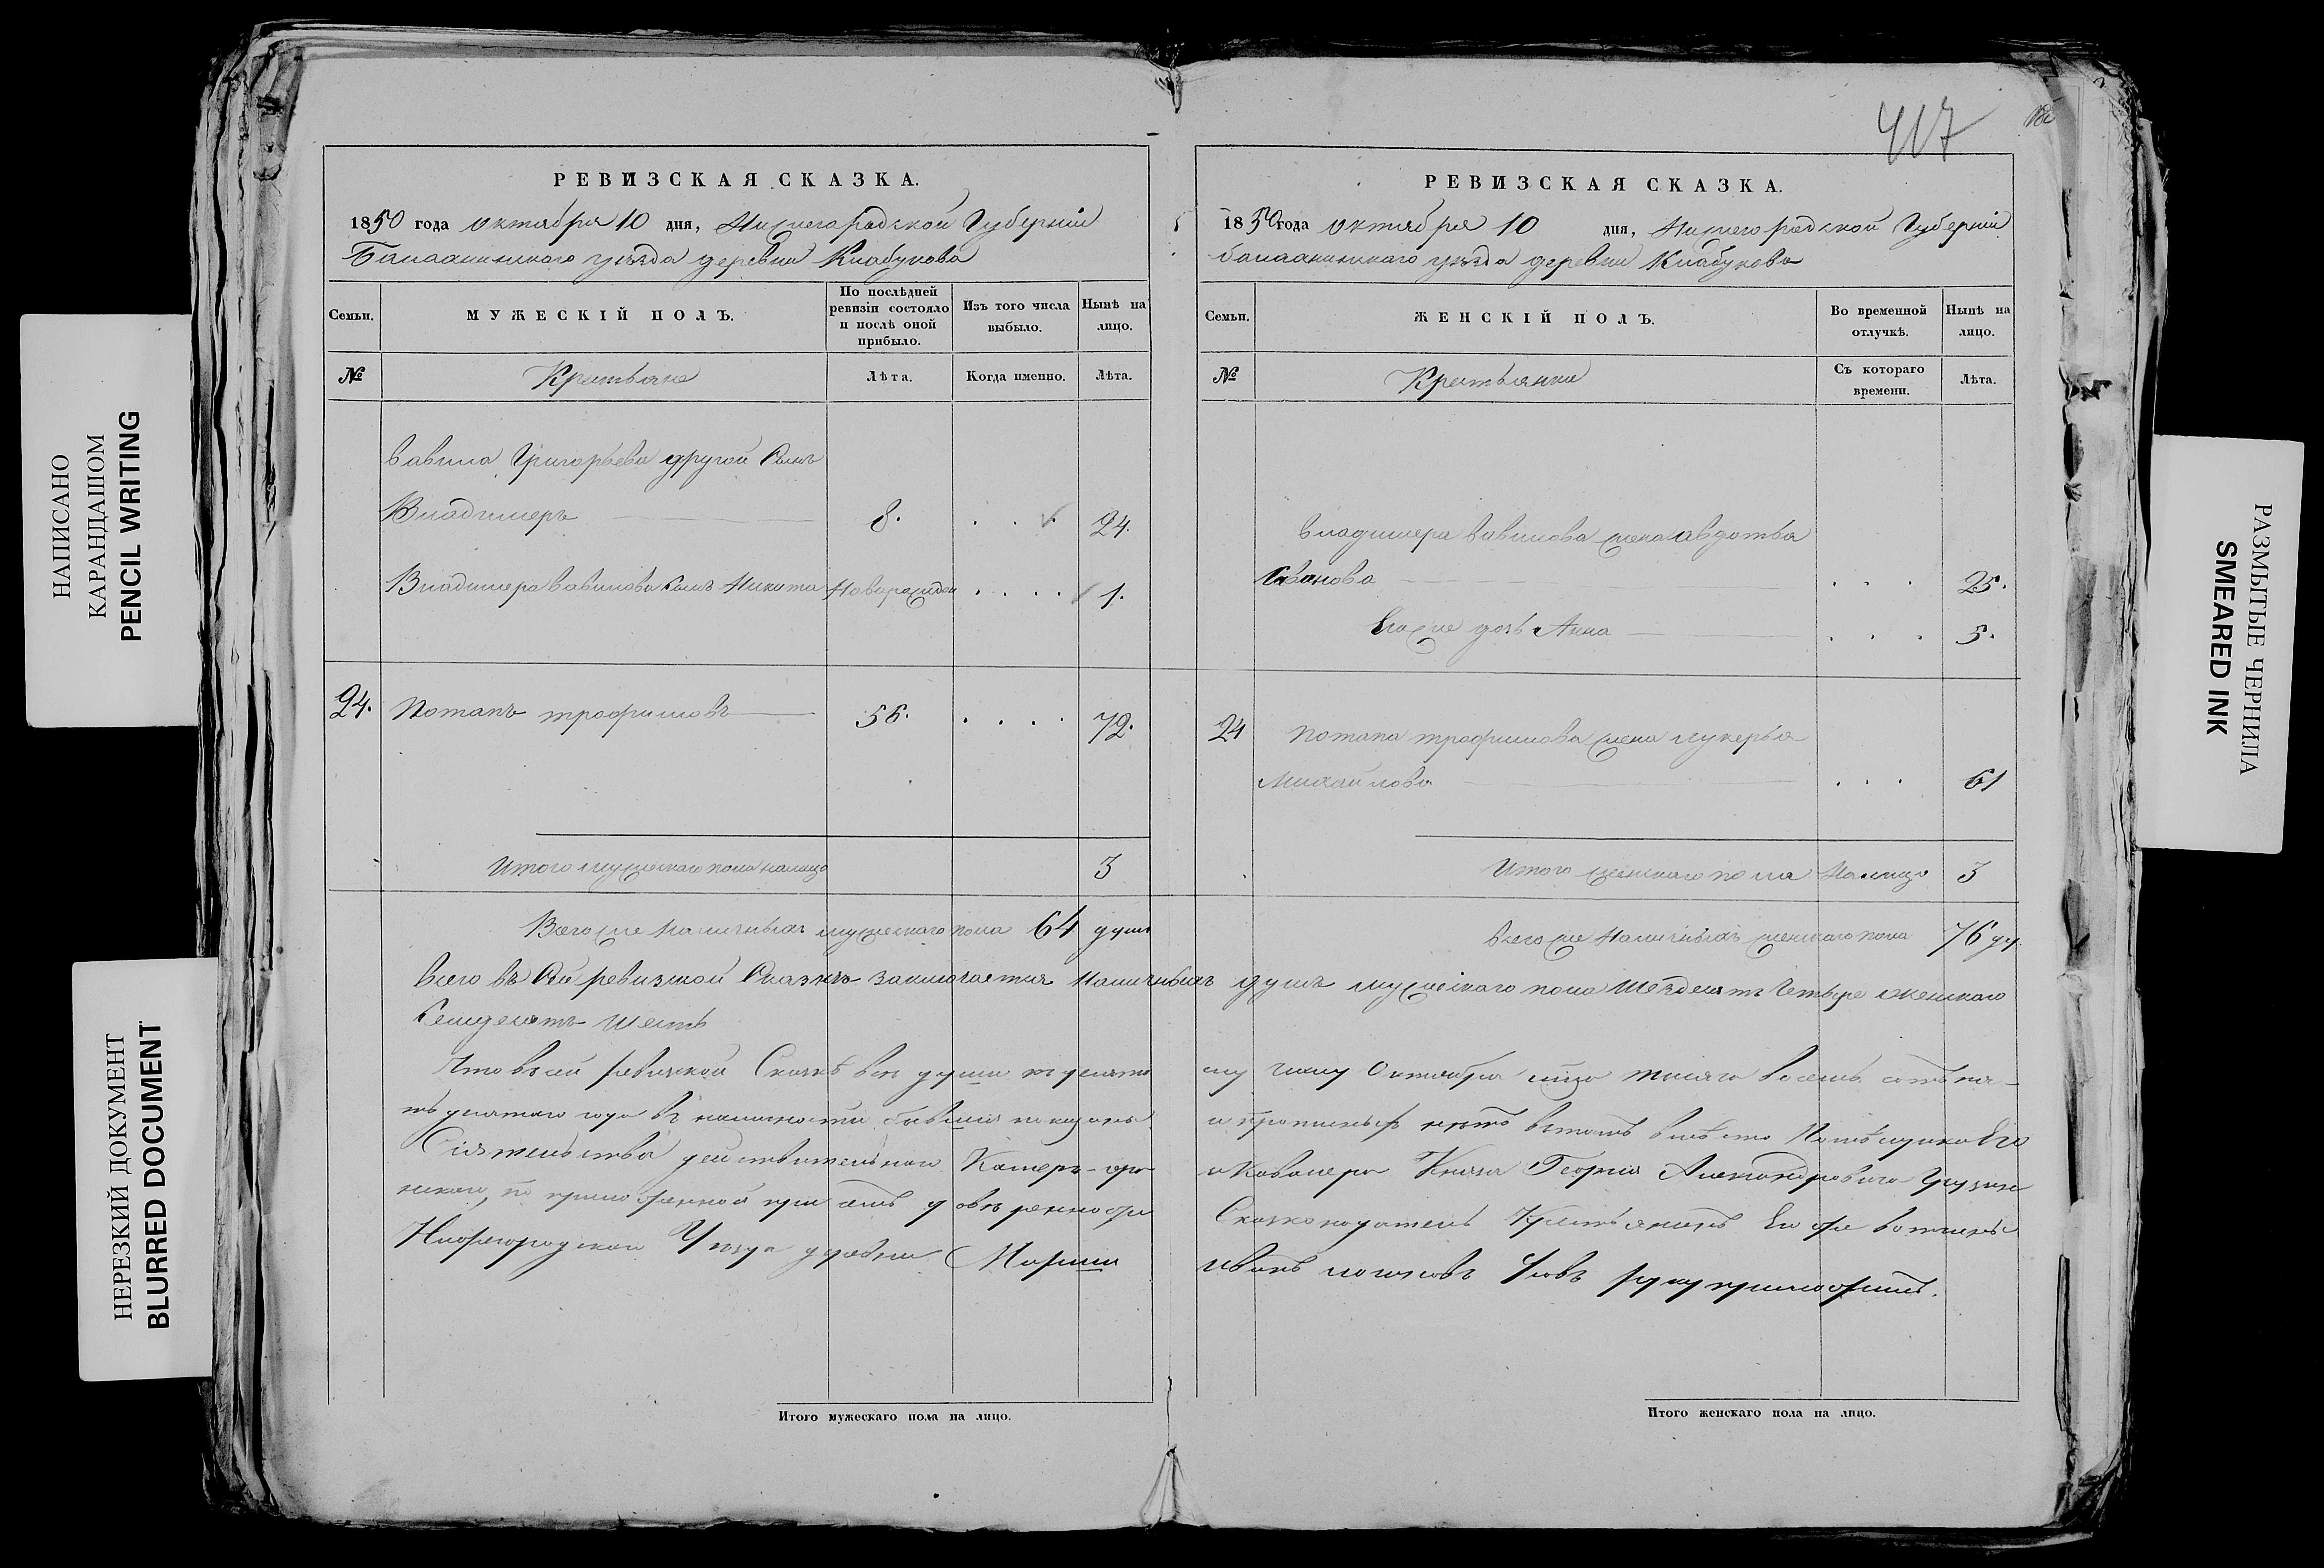 417
НАПИСАНО
КАРАНДАШОМ
PENCIL WRITING
НЕРЕЗКИЙ ДОКУМЕНТ
BLURRED DOCUMENT
РЕВИЗСКАЯ СКАЗКА.
1850 года октября 10 дня, Нижегородской Губернiи
Балахнинскаго уѣзда деревни Клабукова
Семьи.
МУЖЕСКІЙ ПОЛЪ.
По послѣдней ревизіи состояло и послѣ оной прибыло.
Изъ того числа выбыло.
Нынѣ на лицо.
№
Крестьяне
Лѣта.
Когда именно.
Лѣта.
Вавила Григорьева другой Сынъ
Владимеръ 8. . . . 24.
Владимера Вавилова Сынъ Никита Новорожден . . . . 1.
24. Потапъ трофимовъ 56. . . . . 72.
Итого мужескаго пола налицо 3
Всего же Наличныхъ мужескаго пола 64 душъ
РЕВИЗСКАЯ СКАЗКА.
1850 года октября 10 дня, Нижегородской Губернiи
балахнинскаго уѣзда деревни Клабукова
Семьи.
ЖЕНСКІЙ ПОЛЪ.
Во временной отлучкѣ.
Нынѣ на лицо.
№
Крестьянки
Съ котораго времени.
Лѣта.
Владимера Вавилова жена авдотья
Иванова . . . 25.
Его же дочь Анна . . . 5.
24 Потапа трофимова жена лукерья
Михайлова . . . 61
Итого женскаго пола Налицо 3
Всего же Наличныхъ женскаго пола 76 ду.
Всего въ Сей ревизской Сказкѣ заключается Наличныхъ душъ мужескаго пола шездесятъ Четыре женскаго
Семдесятъ шесть
Что въ сей ревизской Сказкѣ всѣ души къ десято му числу Октября тысяча восемь сотъ пя-
тъ десятаго года въ наличности бывшiя показаны и прописныхъ нѣтъ вътомъ вмѣсто Помѣщика Его
Сіятельства действительнаго Камеръ- и Кавалера Князя Георгiя Александровича Грузин
скаго, по приложенной при семъ довѣренности Сказкоподатель Крестьянинъ Его же вотчины
Нижегородскаго Уѣзда деревни Иванъ руку приложилъ.
Итого мужескаго пола на лицо.
Итого женскаго пола на лицо.
РАЗМЫТЫЕ ЧЕРНИЛА
SMEARED INK